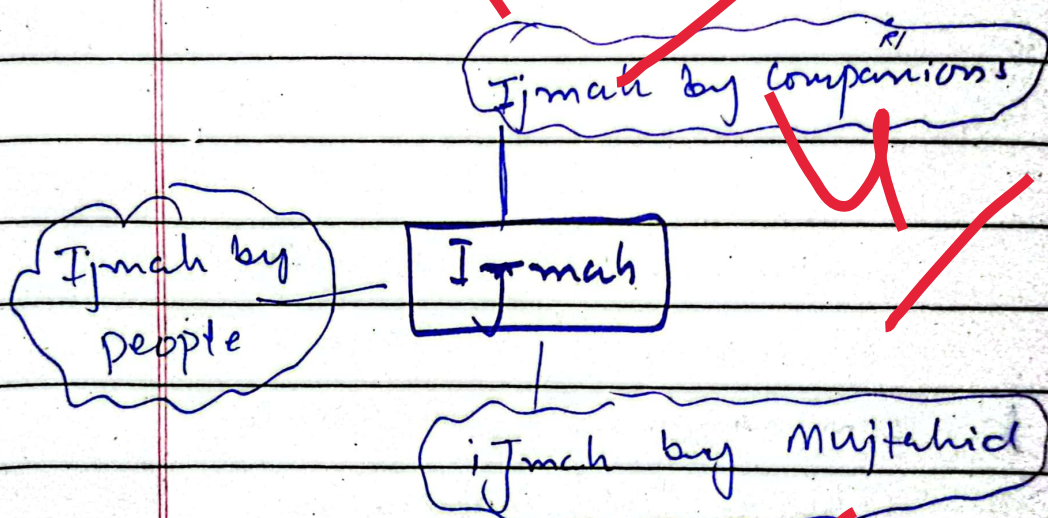 Ijmah by companions
Ijmah by
people
Ijmah
ijmah by Mujtahid